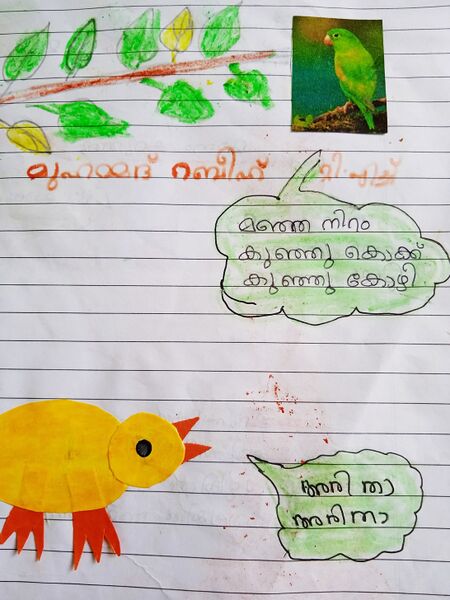 മുഹമ്മദ് റബീഹ് ടി എച്ച്
മഞ്ഞ നിറം
കുഞ്ഞു കൊക്ക്
കുഞ്ഞു കോഴി
അരി താ
അരി താ